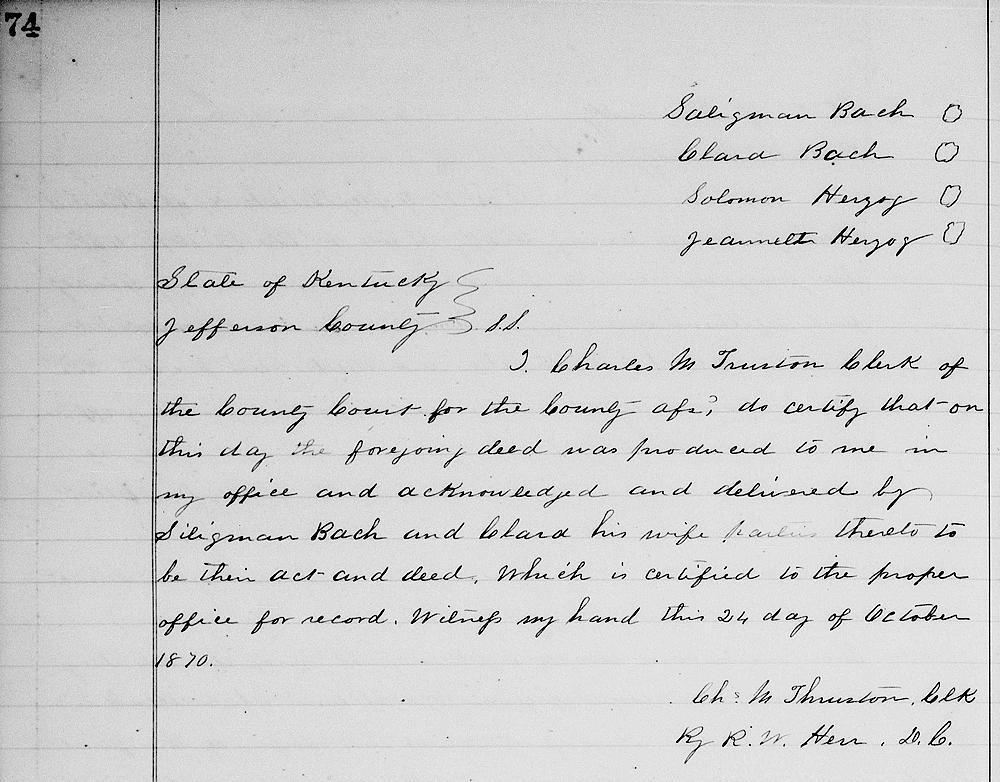 74
Saligman Bach
Clara Bach
Solomon Herzog
Jeannett Herzog
State of Kentucky
Jefferson County } S.S.
I. Charles M Truston Clerk of
the County Court for the County afsd, do certify that on
this day the foregoing deed was produced to me in
my office and acknowledged and delivered by
Siligman Bach and Clara his wife parties thereto to
be their act and deed. Which is certified to the proper
office for record. Witness my hand this 24 day of October
1870.
Chs M Thruston, Clk
By R. W. Herr. D. C.